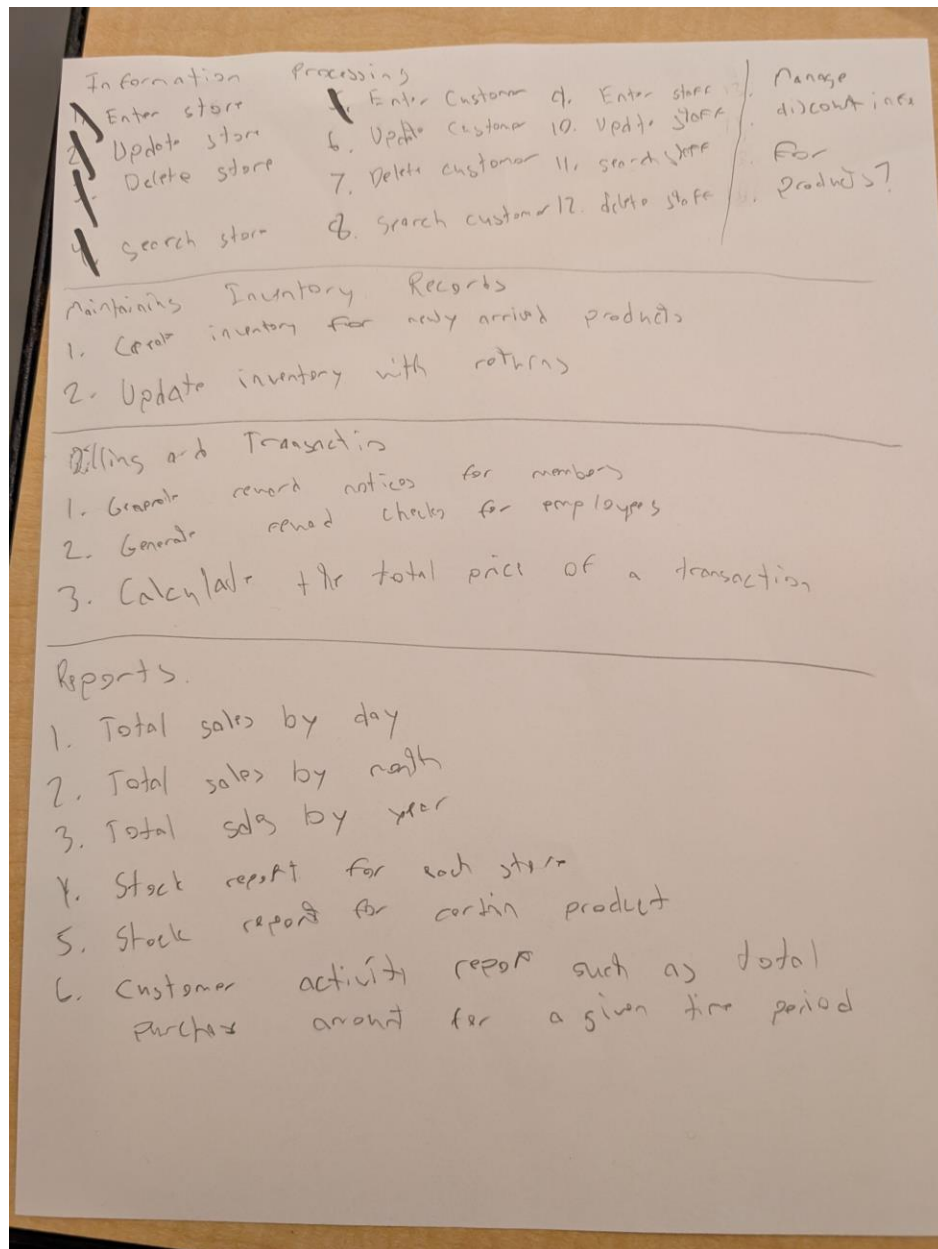 Information Processing
1. Enter store
2. Update store
3. Delete store
4. Search store
5. Enter Customer
6. Update Customer
7. Delete customer
8. Search customer
9. Enter staff
10. Update staff
11. search staff
12. delete staff
Manage
discount info
for
products?
Maintaining Inventory Records
1. Create inventory for newly arrived products
2. Update inventory with returns
Billing and Transactio
1. Generate reward notices for members
2. Generate reward checks for employees
3. Calculate the total price of a transaction
Reports.
1. Total sales by day
2. Total sales by month
3. Total sales by year
4. Stock report for each store
5. Stock report for certin product
6. Customer activity report such as total
purchase amount for a given time period